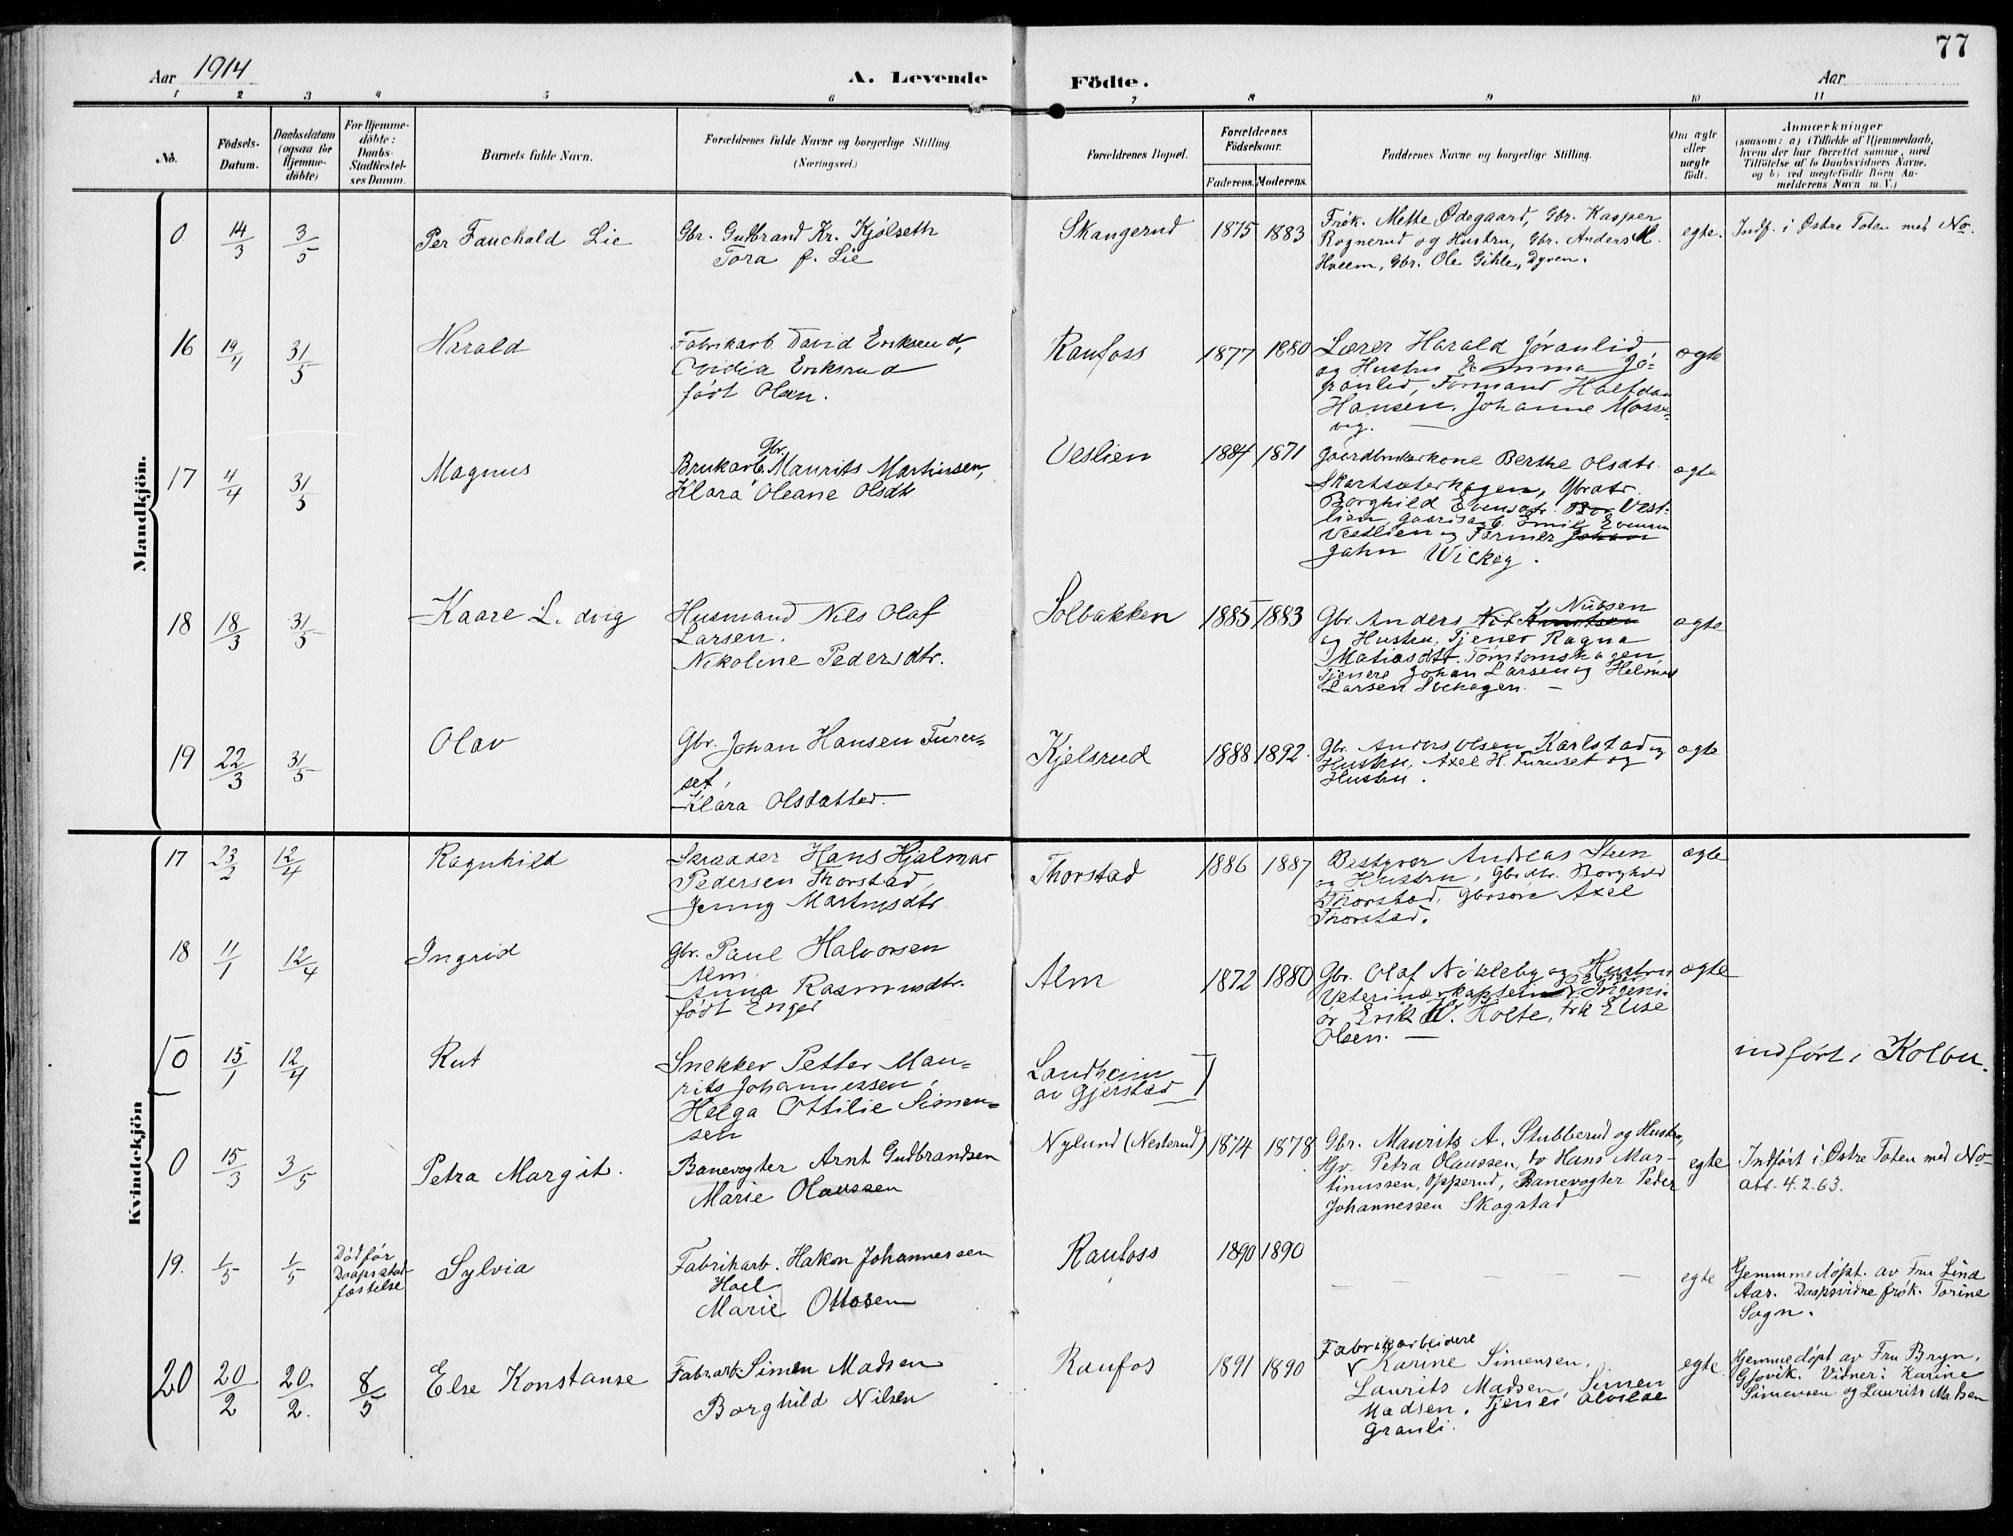 77
Aar 1914
A. Levende
Födte.
Aar
1 2 3 4 5 6 7 8 9 10 11
No.
Födsels-
Datum.
Daabsdatum
(ogsaa for
Hjemme-
döbte)
For Hjemme-
döbte:
Daabs-
Stadfæstel-
ses Datum.
Barnets fulde Navn.
Forældrenes fulde Navne og borgerlige Stilling.
(Næringsvei.)
Forældrenes Bopæl.
Forældrenes
Födselsaar.
Faderens. Moderens.
Faddernes Navne og borgerlige Stilling.
Om ægte
eller
uægte
födt.
Anmærkninger
(saasom: a) i Tilfælde af Hjemmedaab,
hvem der har forrettet samme, med
Tilföielse af to Daabsvidners Navne,
og b) ved uægtefödte Börn An-
melderens Navn m. V.)
Mandkjön.
0 14/3 3/5 Per Fauchald Lie
Gbr. Gudbrand Kr. Kjölseth
Tora f. Lie
Skangerud 1875 1883
Frøk. Mette Ødegaard, Gbr. Kasper
Rognerud og Hustru, Gbr. Anders M.
Hveem, Gbr. Ole Gihle, Dyven.
egte.
Indf. i Østre Toten med No.
16 19/1 31/5 Harald
Fabrikarb David Eriksrud,
Ovidia Eriksrud
født Olsen.
Raufoss 1877 1880
Lærer Harald Jøranlid
og Hustru Emma Jø-
ranlid, Formand Halfdan
Hansen, Johanne Mosse-
vig.
ægte
17 4/4 31/5 Magnus
Gbr.
Brukarb. Maurits Martinsen,
Klara Oleane Olsdt
Veslien 1884 1871
Gaardbrukerkone Berthe Olsdtr.
Skartsæterhagen, Gbrdtr.
Borghild Evensdtr. Vest-
lien, Gaardsarb. Emil Evensen
Vestlien og Farmer Johan
John Wickeg.
ægte
18 18/3 31/5 Kaare L. dvig
Husmand Nils Olaf
Larsen.
Nikoline Pedersdtr.
Solbakken 1885 1883
Nilsen
Gbr. Anders Nils Knutsen
og Hustru, Tjener Ragna
Matiasdtr. Tømtomshagen,
Tjenere Johan Larsen og Helmer
Larsen
ægte
19 22/3 31/5 Olav
Gbr. Johan Hansen Furu-
set,
Klara Olsdatter.
Kjelsrud 1888 1892.
Gbr. Anders Olsen Karlstad og
Hustru, Axel H. Furuset og
Hustru.
ægte
Kvindekjön
17 23/2 12/4 Ragnhild
Skrædder Hans Hjalmar
Pedersen Thorstad,
Jenny Martinsdtr.
Thorstad 1886 1887
Bestyrer Andreas Steen
og Hustru, Gbrdtr. Borghild
Thorstad, Gbrsøn Axel
Thorstad.
ægte
18 11/1 12/4 Ingrid
Gbr. Paul Halvorsen
Alm
Anna Rasmusdtr.
født Enger
Alm 1872 1880
Gbr. Olaf Nøkleby og Hustru
Veterinærkaptein Ingeni-
ør Erik W. Holte, frk Elise
Olsen.
ægte
0 15/1 12/4 Rut
Snekker Petter Mau-
rits Johannessen,
Helga Ottilie Simen-
sen
Landheim
av Gjerstad
indført i Kolbu.
0 15/3 3/5 Petra Margit.
Banevogter Arnt Gudbrandsen
Marie Olaussen
Nylund (Nesterud) 1874 1878
Gbr. Maurits A. Stubberud og Hustru,
Hjv. Petra Olaussen, do Hans Mar-
tinussen, Opperud, Banevogter Peder
Johannessen Skogstad
egte
Indført i Østre Toten med No
att. 4.2.63.
19. 1/5 1/5
Død før
Daapsstad-
fæstelse
Sylvia
Fabrikarb. Hakon Johannessen
Hoel
Marie Ottosen
Raufoss 1890 1890
egte
Hjemmedøpt. av Fru Lind
Aas. Daapsvidne frøk. Torine
Sogn.
20 20/2 20/2. 8/5 Else Konstanse
Fabrarb. Simen Madsen
Borghild Nilsen
Raufos 1891 1890
Fabrikarbeidere
Karine Simensen,
Laurits Madsen, Simen
Madsen, Tjener
Granli.
egte
Hjemmedøpt av Fru Bryn,
Gjøvik. Vidner: Karine
Simensen og Laurits Madsen